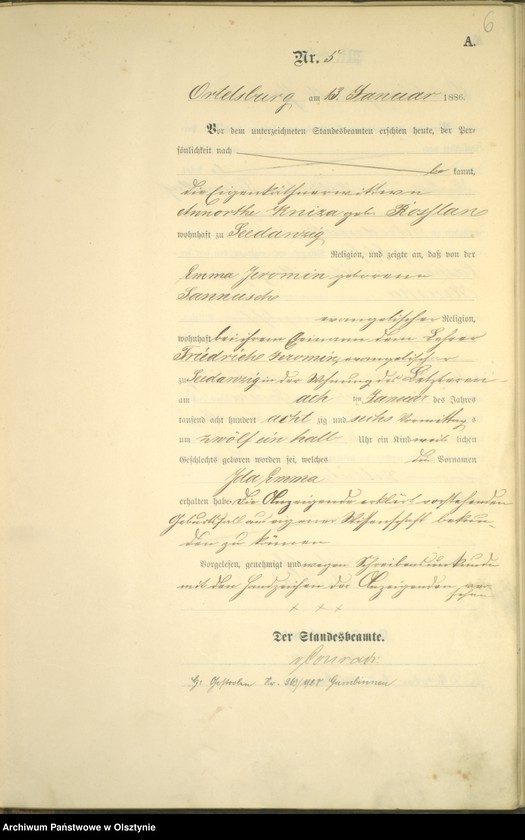 6
A.
Nr. 5
Ortelsburg am 13. Januar 1886.
Vor dem unterzeichneten Standesbeamten erschien heute, der Per-
sönlichkeit nach
be kannt,
die Eigenkäthnerwittwe
Annorthe Kniza geb. Rosslan
wohnhaft zu Seedanzig
Religion, und zeigte an, daß von der
Emma Jeromin geborene
Sannusch
evangelischer Religion,
wohnhaft bei ihrem Ehemann dem Lehrer
Friedrich Jeromin, evangelischer
zu Seedanzig in der Wohnung des Letzteren
am ach ten Januar des Jahres
tausend acht hundert acht zig und sechs Vormittags
um zwölf ein halb Uhr ein Kind weib lichen
Geschlechts geboren worden sei, welches die Vornamen
Ida Emma
erhalten habe. Die Anzeigende erklärt vorstehenden
Geburtsfall aus eigener Wissenschaft bekun-
den zu können
Vorgelesen, genehmigt und wegen Schreibensunkunde
mit den Handzeichen der Anzeigenden ver-
sehen
+ + +
Der Standesbeamte.
v Conradi
Gestorben Nr. Gumbinnen
Archiwum Państwowe w Olsztynie